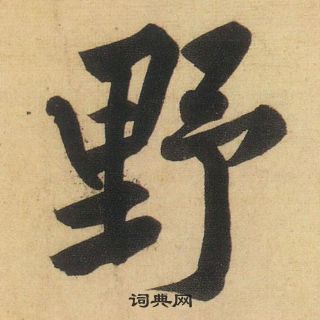 野
词典网